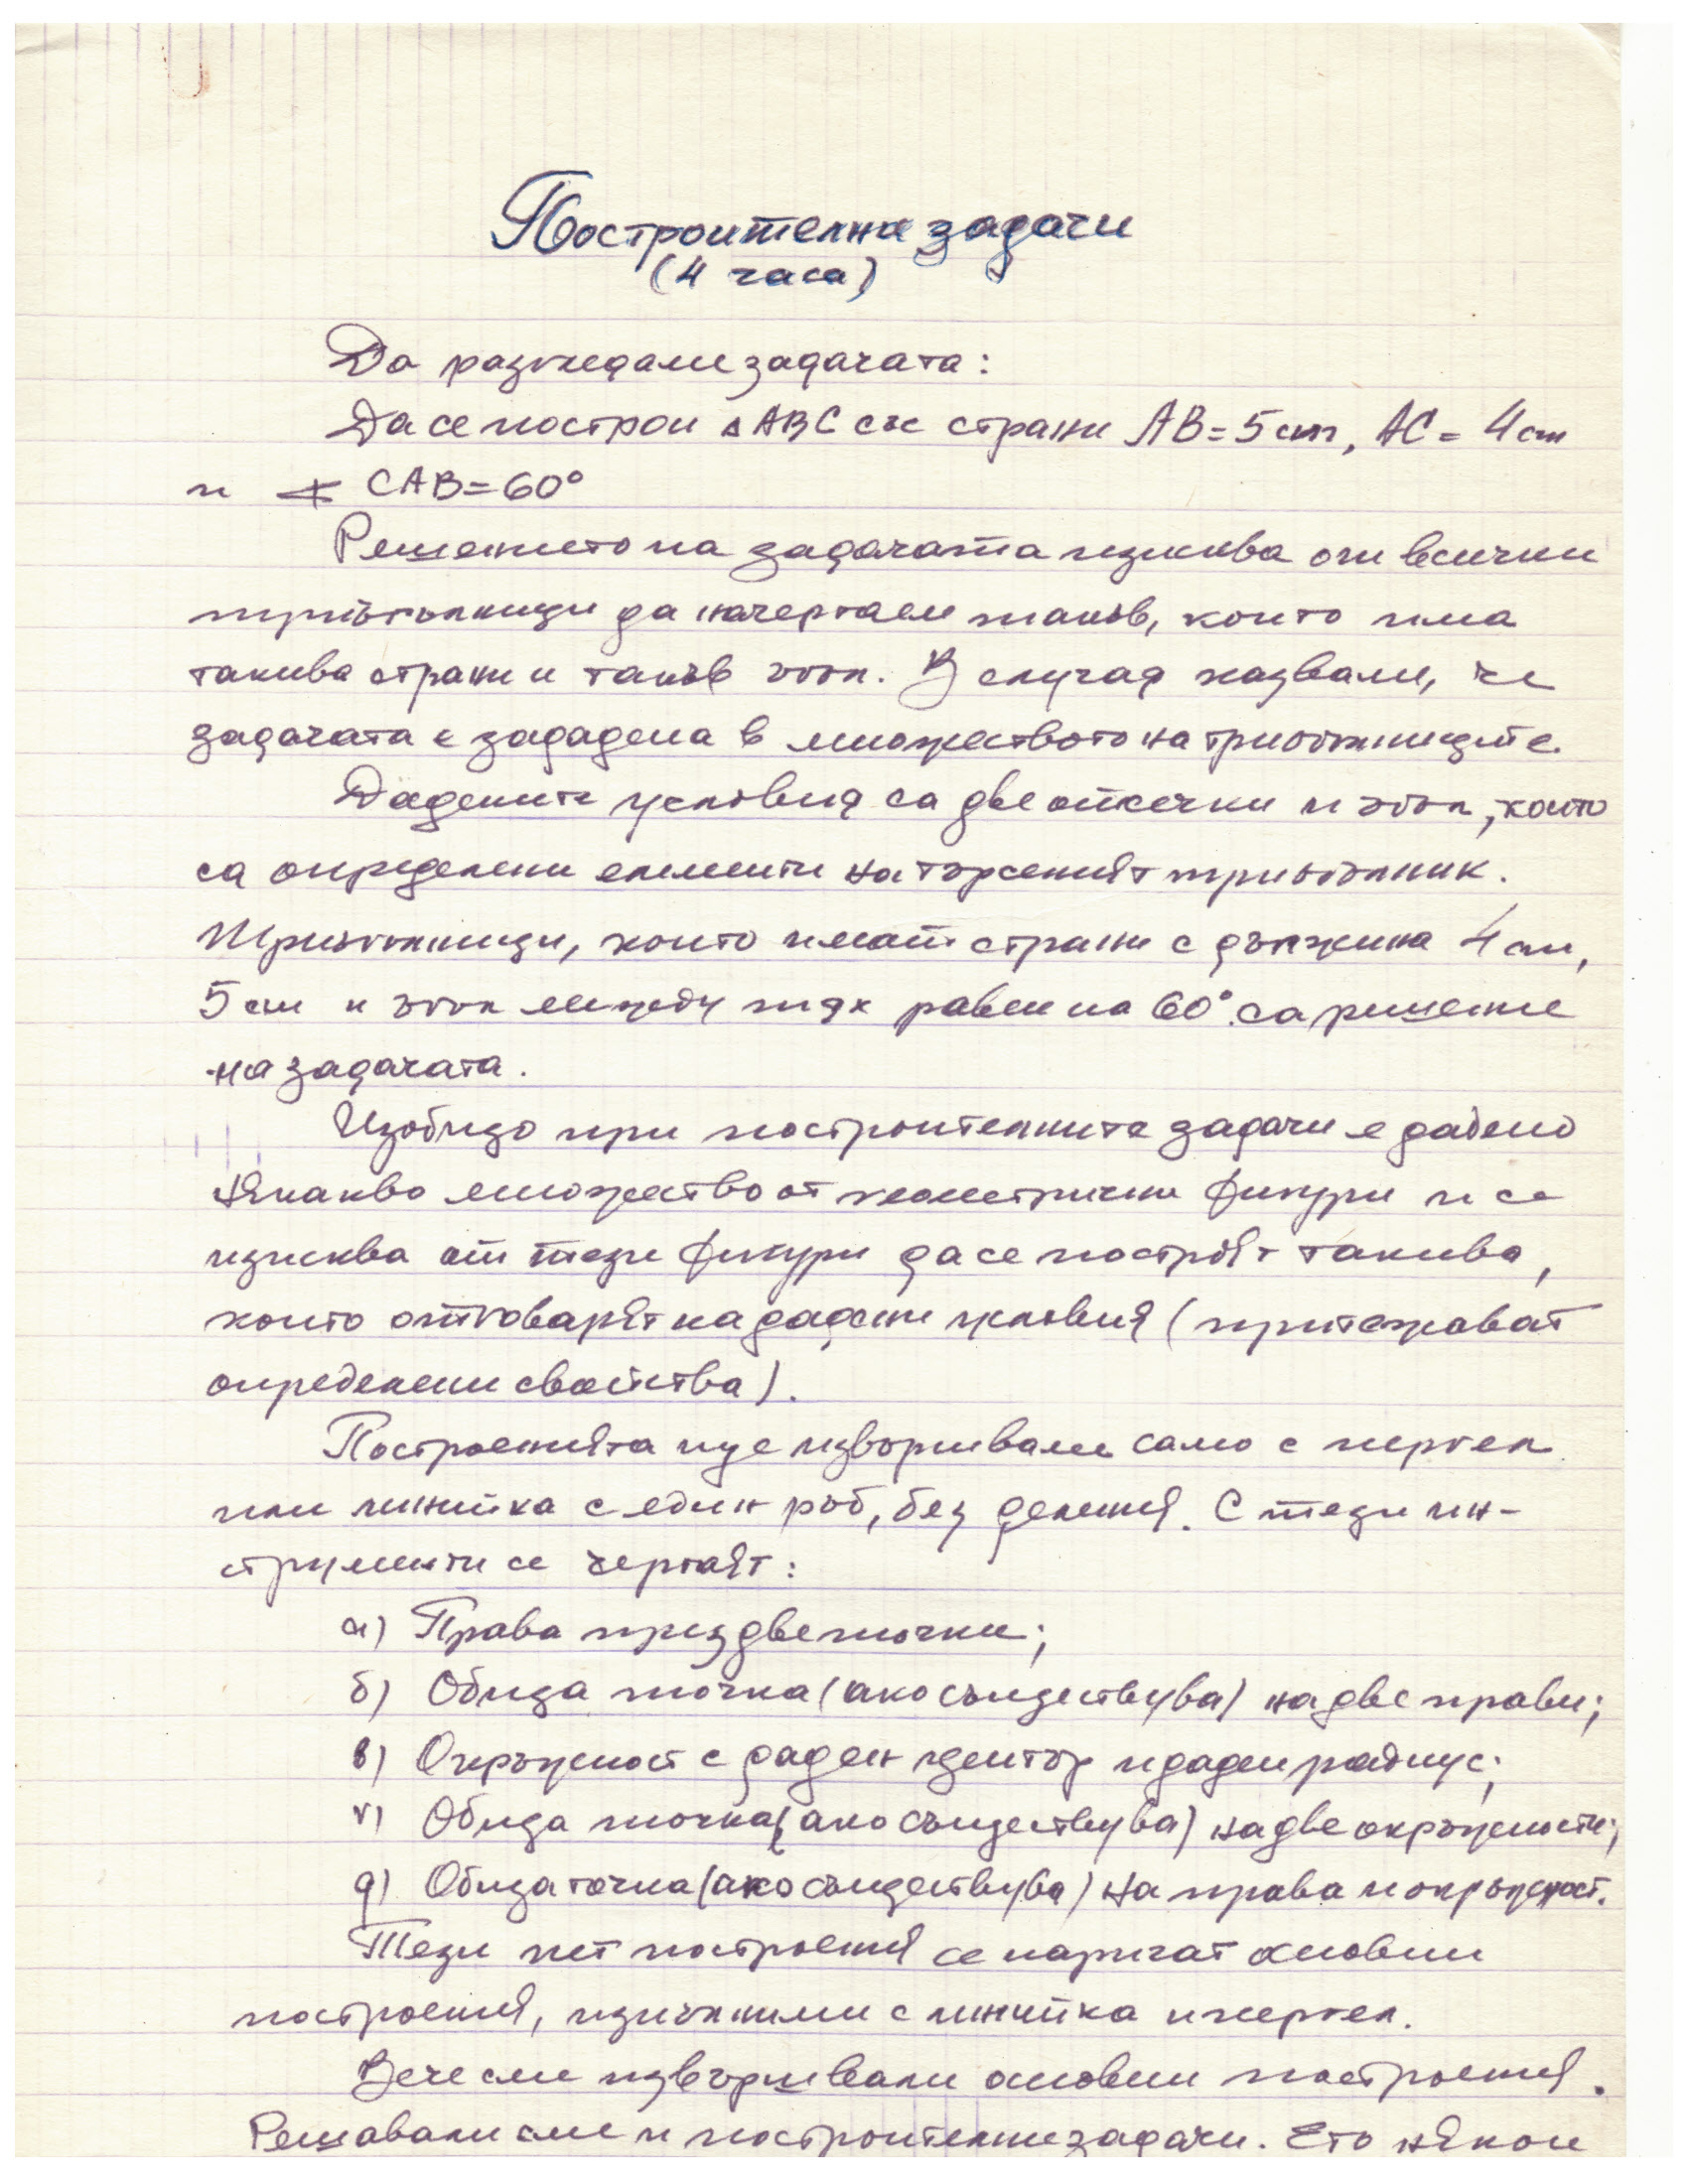 Построителни задачи
(4 часа)
Да разгледаме задачата:
Да се построи △ ABC със страни AB = 5 cm, AC = 4 cm
и ∢ CAB = 60°
Решението на задачата изисква от всички
триъгълници да начертаем такъв, който има
такива страни и такъв ъгъл. В случая казваме, че
задачата е зададена в множеството на триъгълниците.
Дадените условия са две отсечки и ъгъл, които
са определени елементи на търсеният триъгълник.
Триъгълници, които имат страни с дължина 4 см,
5 см и ъгъл между тях равен на 60° са решение
на задачата.
Изобщо при построителните задачи е дадено
някакво множество от геометрични фигури и се
изисква от тези фигури да се построят такива,
които отговарят на дадени условия (притежават
определени свойства).
Построенията ще извършваме само с пергел
или линийка с един ръб, без деления. С тези ин-
струменти се чертаят:
а) Права през две точки;
б) Обща точка (ако съществува) на две прави;
в) Окръжност с даден център и даден радиус;
г) Обща точка (ако съществува) на две окръжности;
д) Обща точка (ако съществува) на права и окръжност.
Тези пет построения се наричат основни
построения, изпълними с линийка и пергел.
Вече сме извършвали основни построения.
Решавали сме и построителни задачи. Ето някои